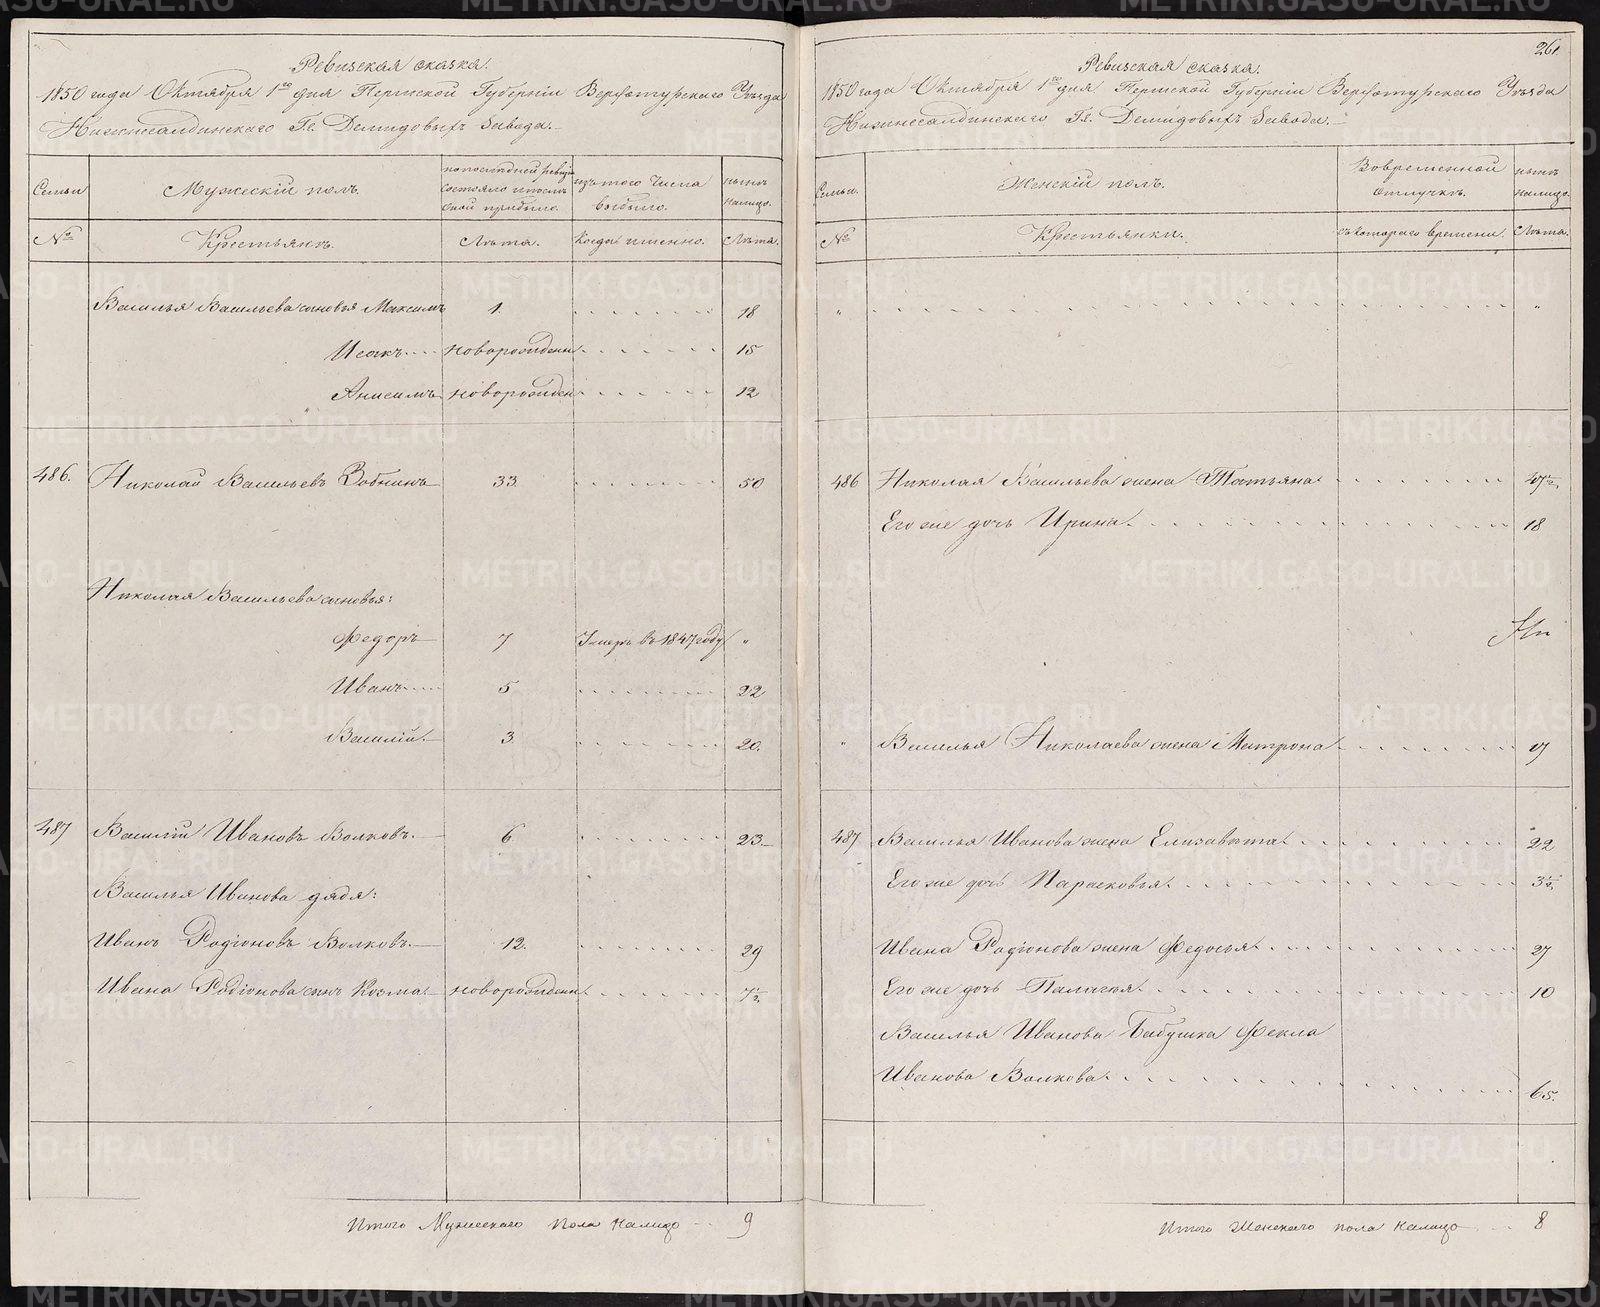 Ревизская сказка.
1850 года Октября 1го дня Пермской Губерніи Верхотурскаго Уѣзда
Нижнесалдинскаго Гг. Демидовыхъ Завода.
Семьи
Мужескій полъ.
по последней ревизіи
состояло и после
оной прибыло.
изъ того числа
выбыло.
ныне
налицо.
№
Крестьянъ.
Лѣта.
Когда именно.
Лѣта.
Василья Васильева сыновья Максимъ 1. 18
Исакъ новорожден 15
Анисимъ новорожден 12
486. Николай Васильевъ Зобнинъ 33. 50
Николая Васильева сыновья:
Федоръ 7 Умеръ въ 1847 году "
Иванъ 5 22
Василій. 3 20.
487 Василій Ивановъ Волковъ. 6 23.
Василья Иванова дядя:
Иванъ Родіоновъ Волковъ. 12. 29
Ивана Родіонова сынъ Козма. новорожден 7½
Итого Мужескаго пола налицо 9
26
Ревизская сказка.
1850 года Октября 1го дня Пермской Губерніи Верхотурскаго Уѣзда
Нижнесалдинскаго Гг. Демидовыхъ Завода.
Семьи.
Женскій полъ.
Во временной
отлучкѣ.
ныне
налицо.
№
Крестьянки.
съ котораго времени.
Лѣта.
" "
486 Николая Васильева жена Татьяна
Его же дочь Ирина. 18
" Василья Николаева жена Матрона 17
487 Василья Иванова жена Елизавета 22
Его же дочь Парасковья. 3½
Ивана Родіонова жена Федосья. 27
Его же дочь Палагья. 10
Василья Иванова Бабушка Фекла
Иванова Волкова. 65.
Итого Женскаго пола налицо 8
METRIKI.GASO-URAL.RU